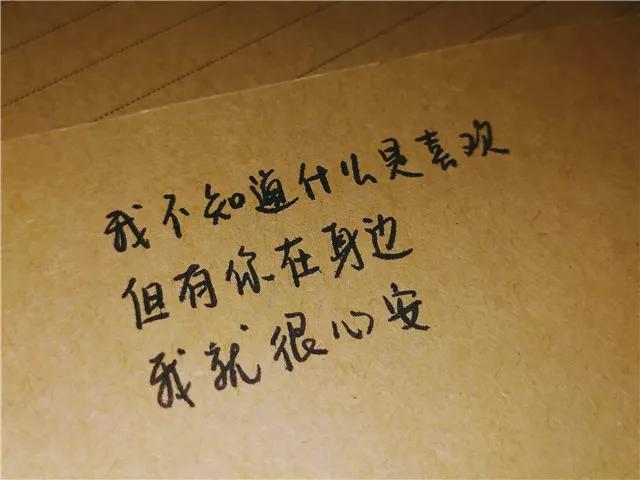 我不知道什么是喜欢
但有你在身边
我就很心安